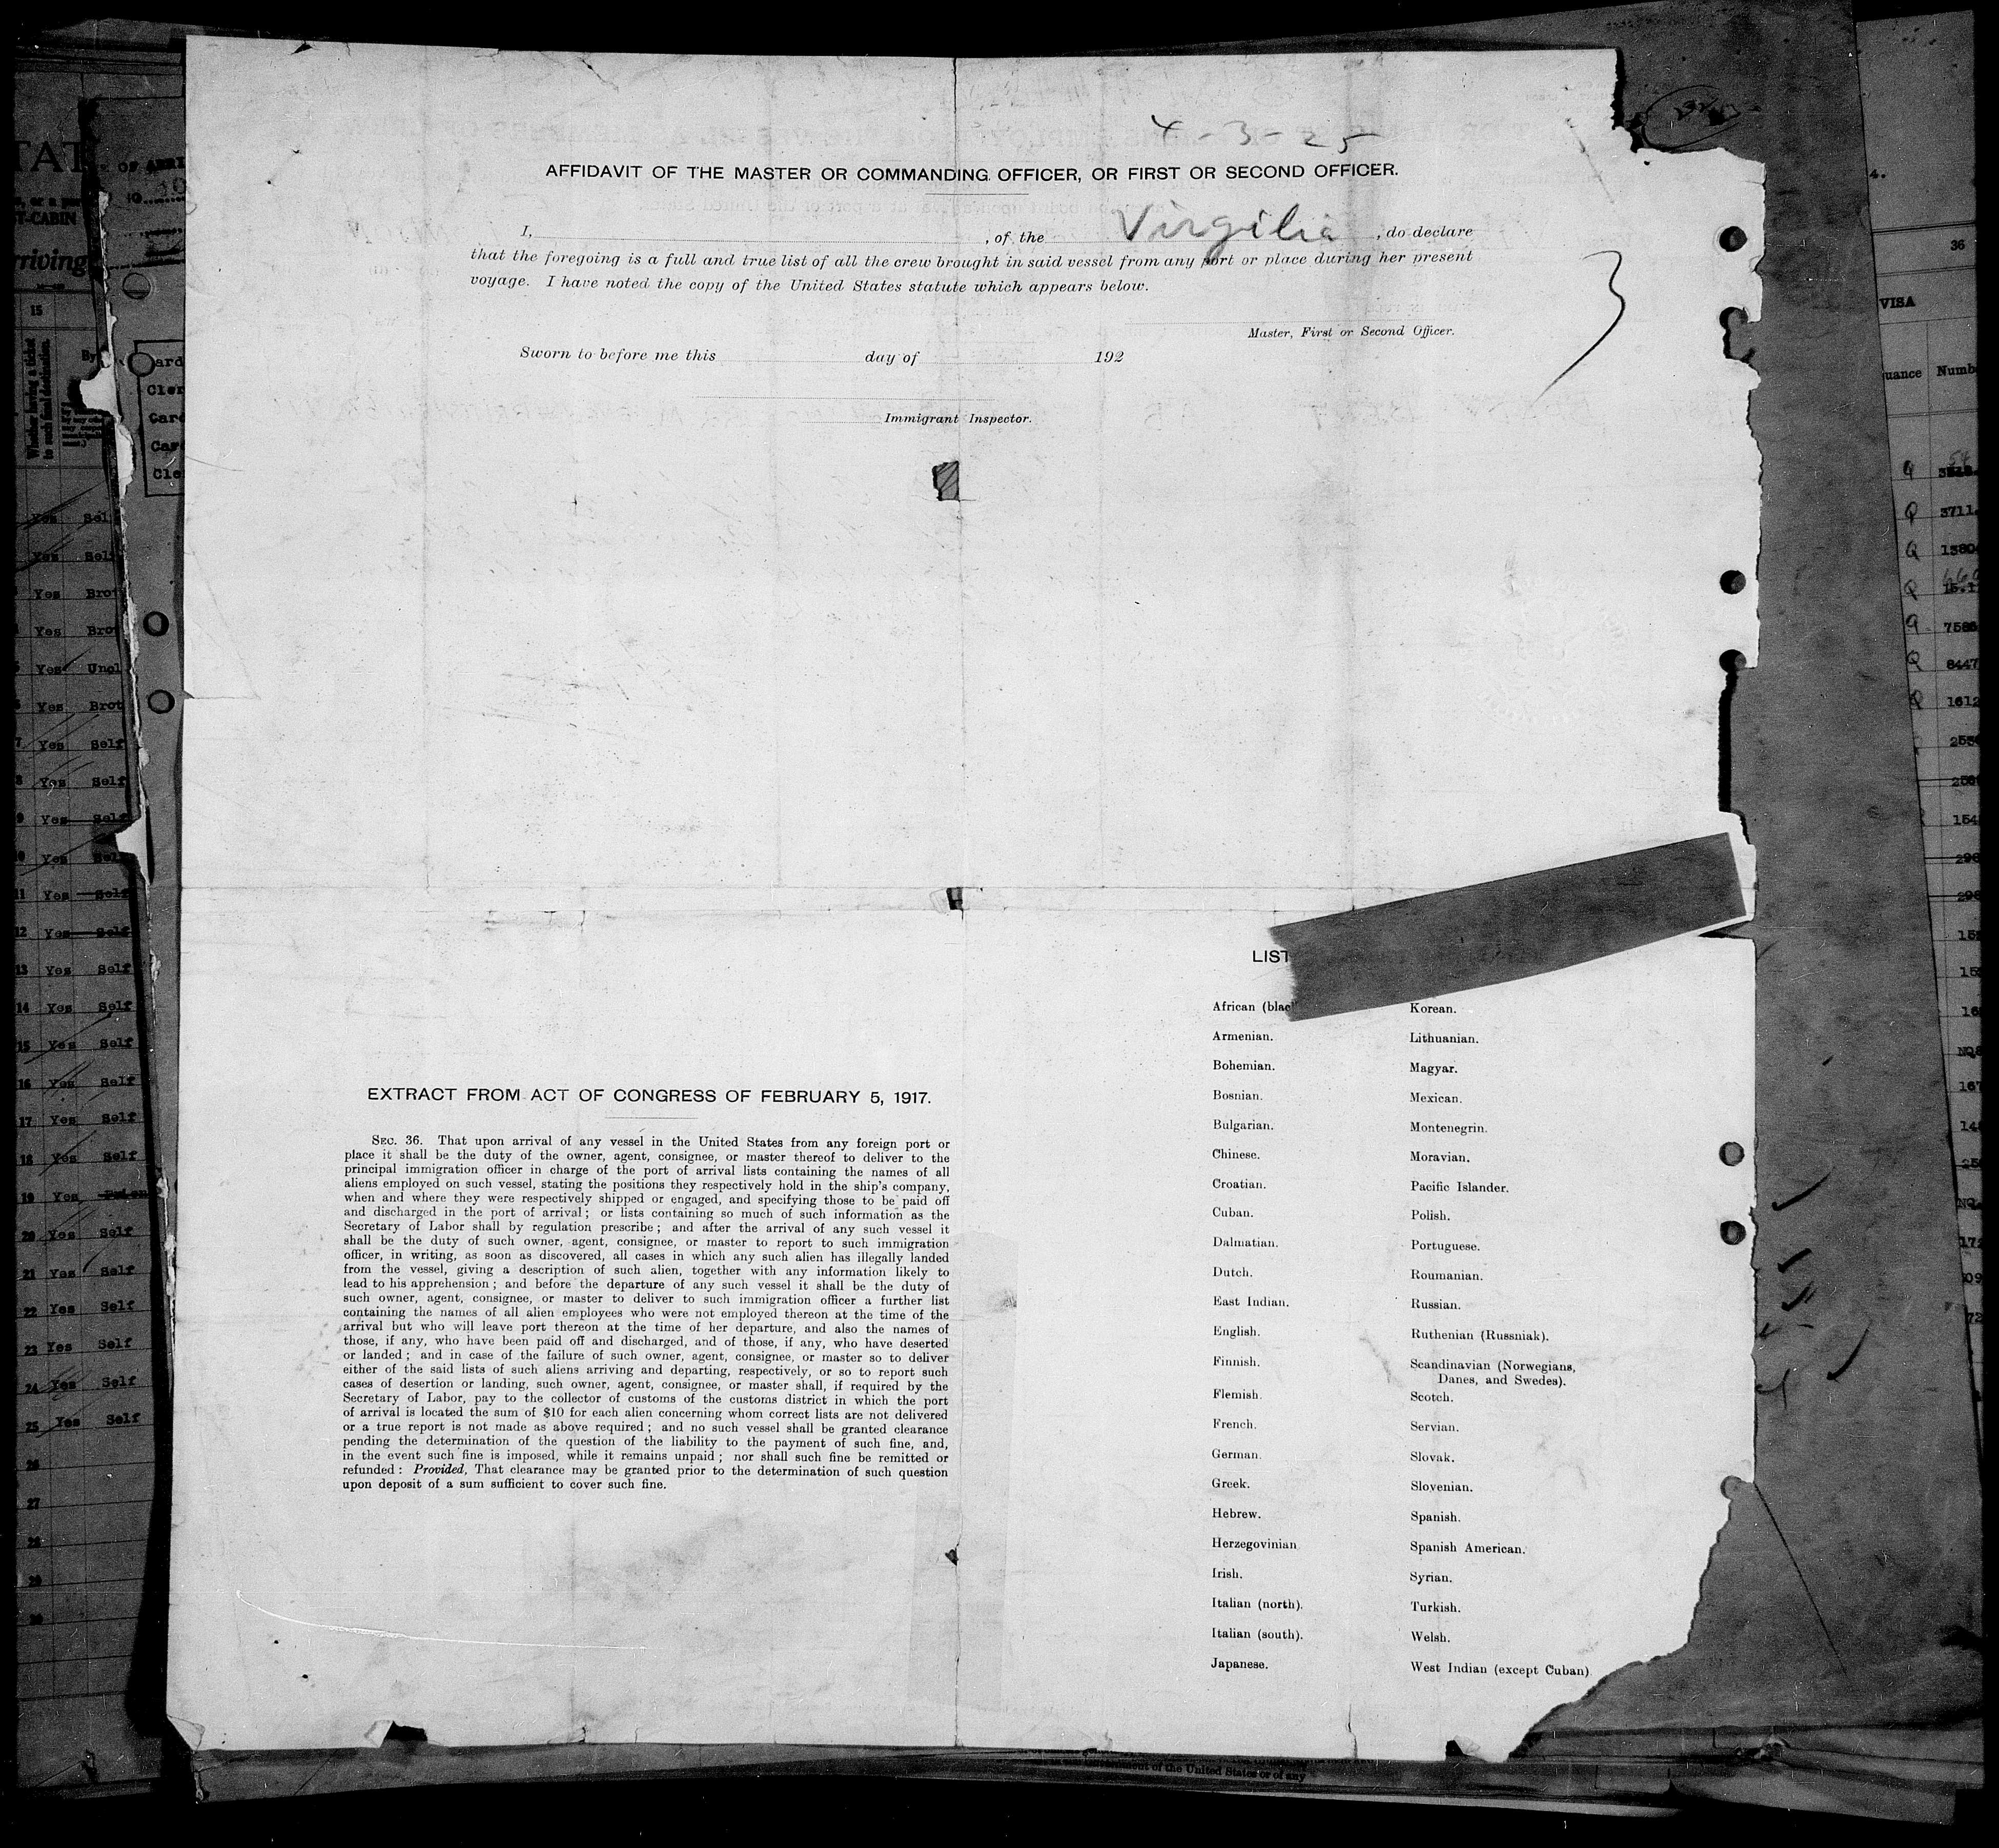 4-3-25
AFFIDAVIT OF THE MASTER OR COMMANDING OFFICER, OR FIRST OR SECOND OFFICER.
I, , of the Virgilia , do declare
that the foregoing is a full and true list of all the crew brought in said vessel from any port or place during her present
voyage. I have noted the copy of the United States statute which appears below.
Master, First or Second Officer.
Sworn to before me this day of 192
Immigrant Inspector.
3
EXTRACT FROM ACT OF CONGRESS OF FEBRUARY 5, 1917.
SEC. 36. That upon arrival of any vessel in the United States from any foreign port or
place it shall be the duty of the owner, agent, consignee, or master thereof to deliver to the
principal immigration officer in charge of the port of arrival lists containing the names of all
aliens employed on such vessel, stating the positions they respectively hold in the ship's company,
when and where they were respectively shipped or engaged, and specifying those to be paid off
and discharged in the port of arrival; or lists containing so much of such information as the
Secretary of Labor shall by regulation prescribe; and after the arrival of any such vessel it
shall be the duty of such owner, agent, consignee, or master to report to such immigration
officer, in writing, as soon as discovered, all cases in which any such alien has illegally landed
from the vessel, giving a description of such alien, together with any information likely to
lead to his apprehension; and before the departure of any such vessel it shall be the duty of
such owner, agent, consignee, or master to deliver to such immigration officer a further list
containing the names of all alien employees who were not employed thereon at the time of the
arrival but who will leave port thereon at the time of her departure, and also the names of
those, if any, who have been paid off and discharged, and of those, if any, who have deserted
or landed; and in case of the failure of such owner, agent, consignee, or master so to deliver
either of the said lists of such aliens arriving and departing, respectively, or so to report such
cases of desertion or landing, such owner, agent, consignee, or master shall, if required by the
Secretary of Labor, pay to the collector of customs of the customs district in which the port
of arrival is located the sum of $10 for each alien concerning whom correct lists are not delivered
or a true report is not made as above required; and no such vessel shall be granted clearance
pending the determination of the question of the liability to the payment of such fine, and,
in the event such fine is imposed, while it remains unpaid; nor shall such fine be remitted or
refunded: Provided, That clearance may be granted prior to the determination of such question
upon deposit of a sum sufficient to cover such fine.
LIST
African (blac
Armenian.
Bohemian.
Bosnian.
Bulgarian.
Chinese.
Croatian.
Cuban.
Dalmatian.
Dutch.
East Indian.
English.
Finnish.
Flemish.
French.
German.
Greek.
Hebrew.
Herzegovinian
Irish.
Italian (north).
Italian (south).
Japanese.
Korean.
Lithuanian.
Magyar.
Mexican.
Montenegrin.
Moravian.
Pacific Islander.
Polish.
Portuguese.
Roumanian.
Russian.
Ruthenian (Russniak).
Scandinavian (Norwegians,
Danes, and Swedes).
Scotch.
Servian.
Slovak.
Slovenian.
Spanish.
Spanish American.
Syrian.
Turkish.
Welsh.
West Indian (except Cuban)